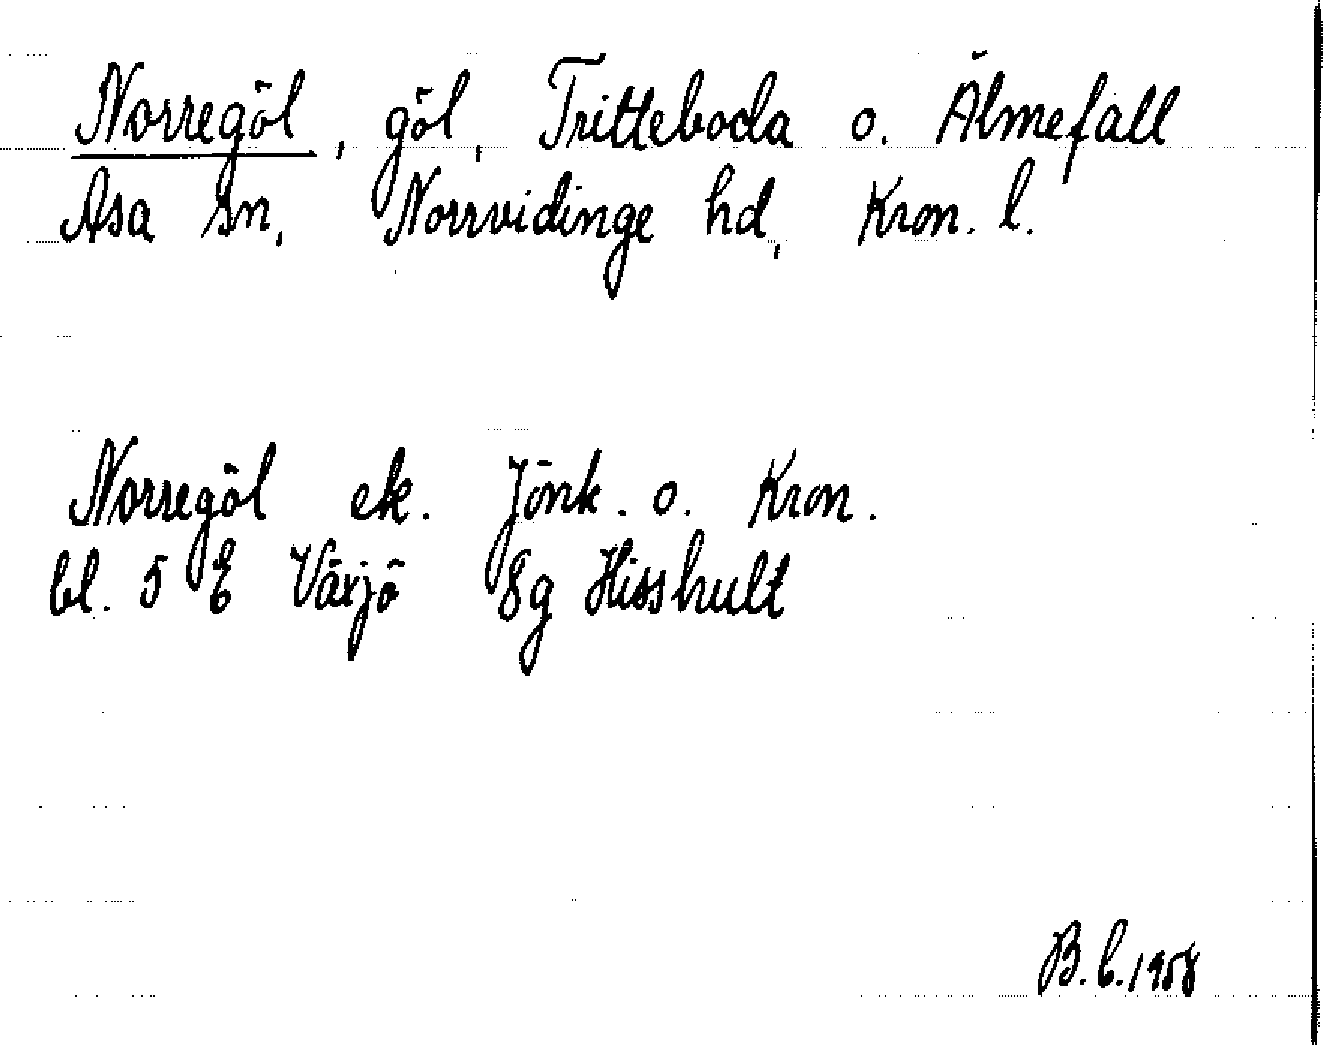 Norregöl, göl, Tritteboda o. Älmefall
Asa sn, Norrvidinge hd, Kron. l.
Norregöl ek. Jönk. o. Kron.
bl. 5 E Växjö 8g Hisshult
B.L. 1958